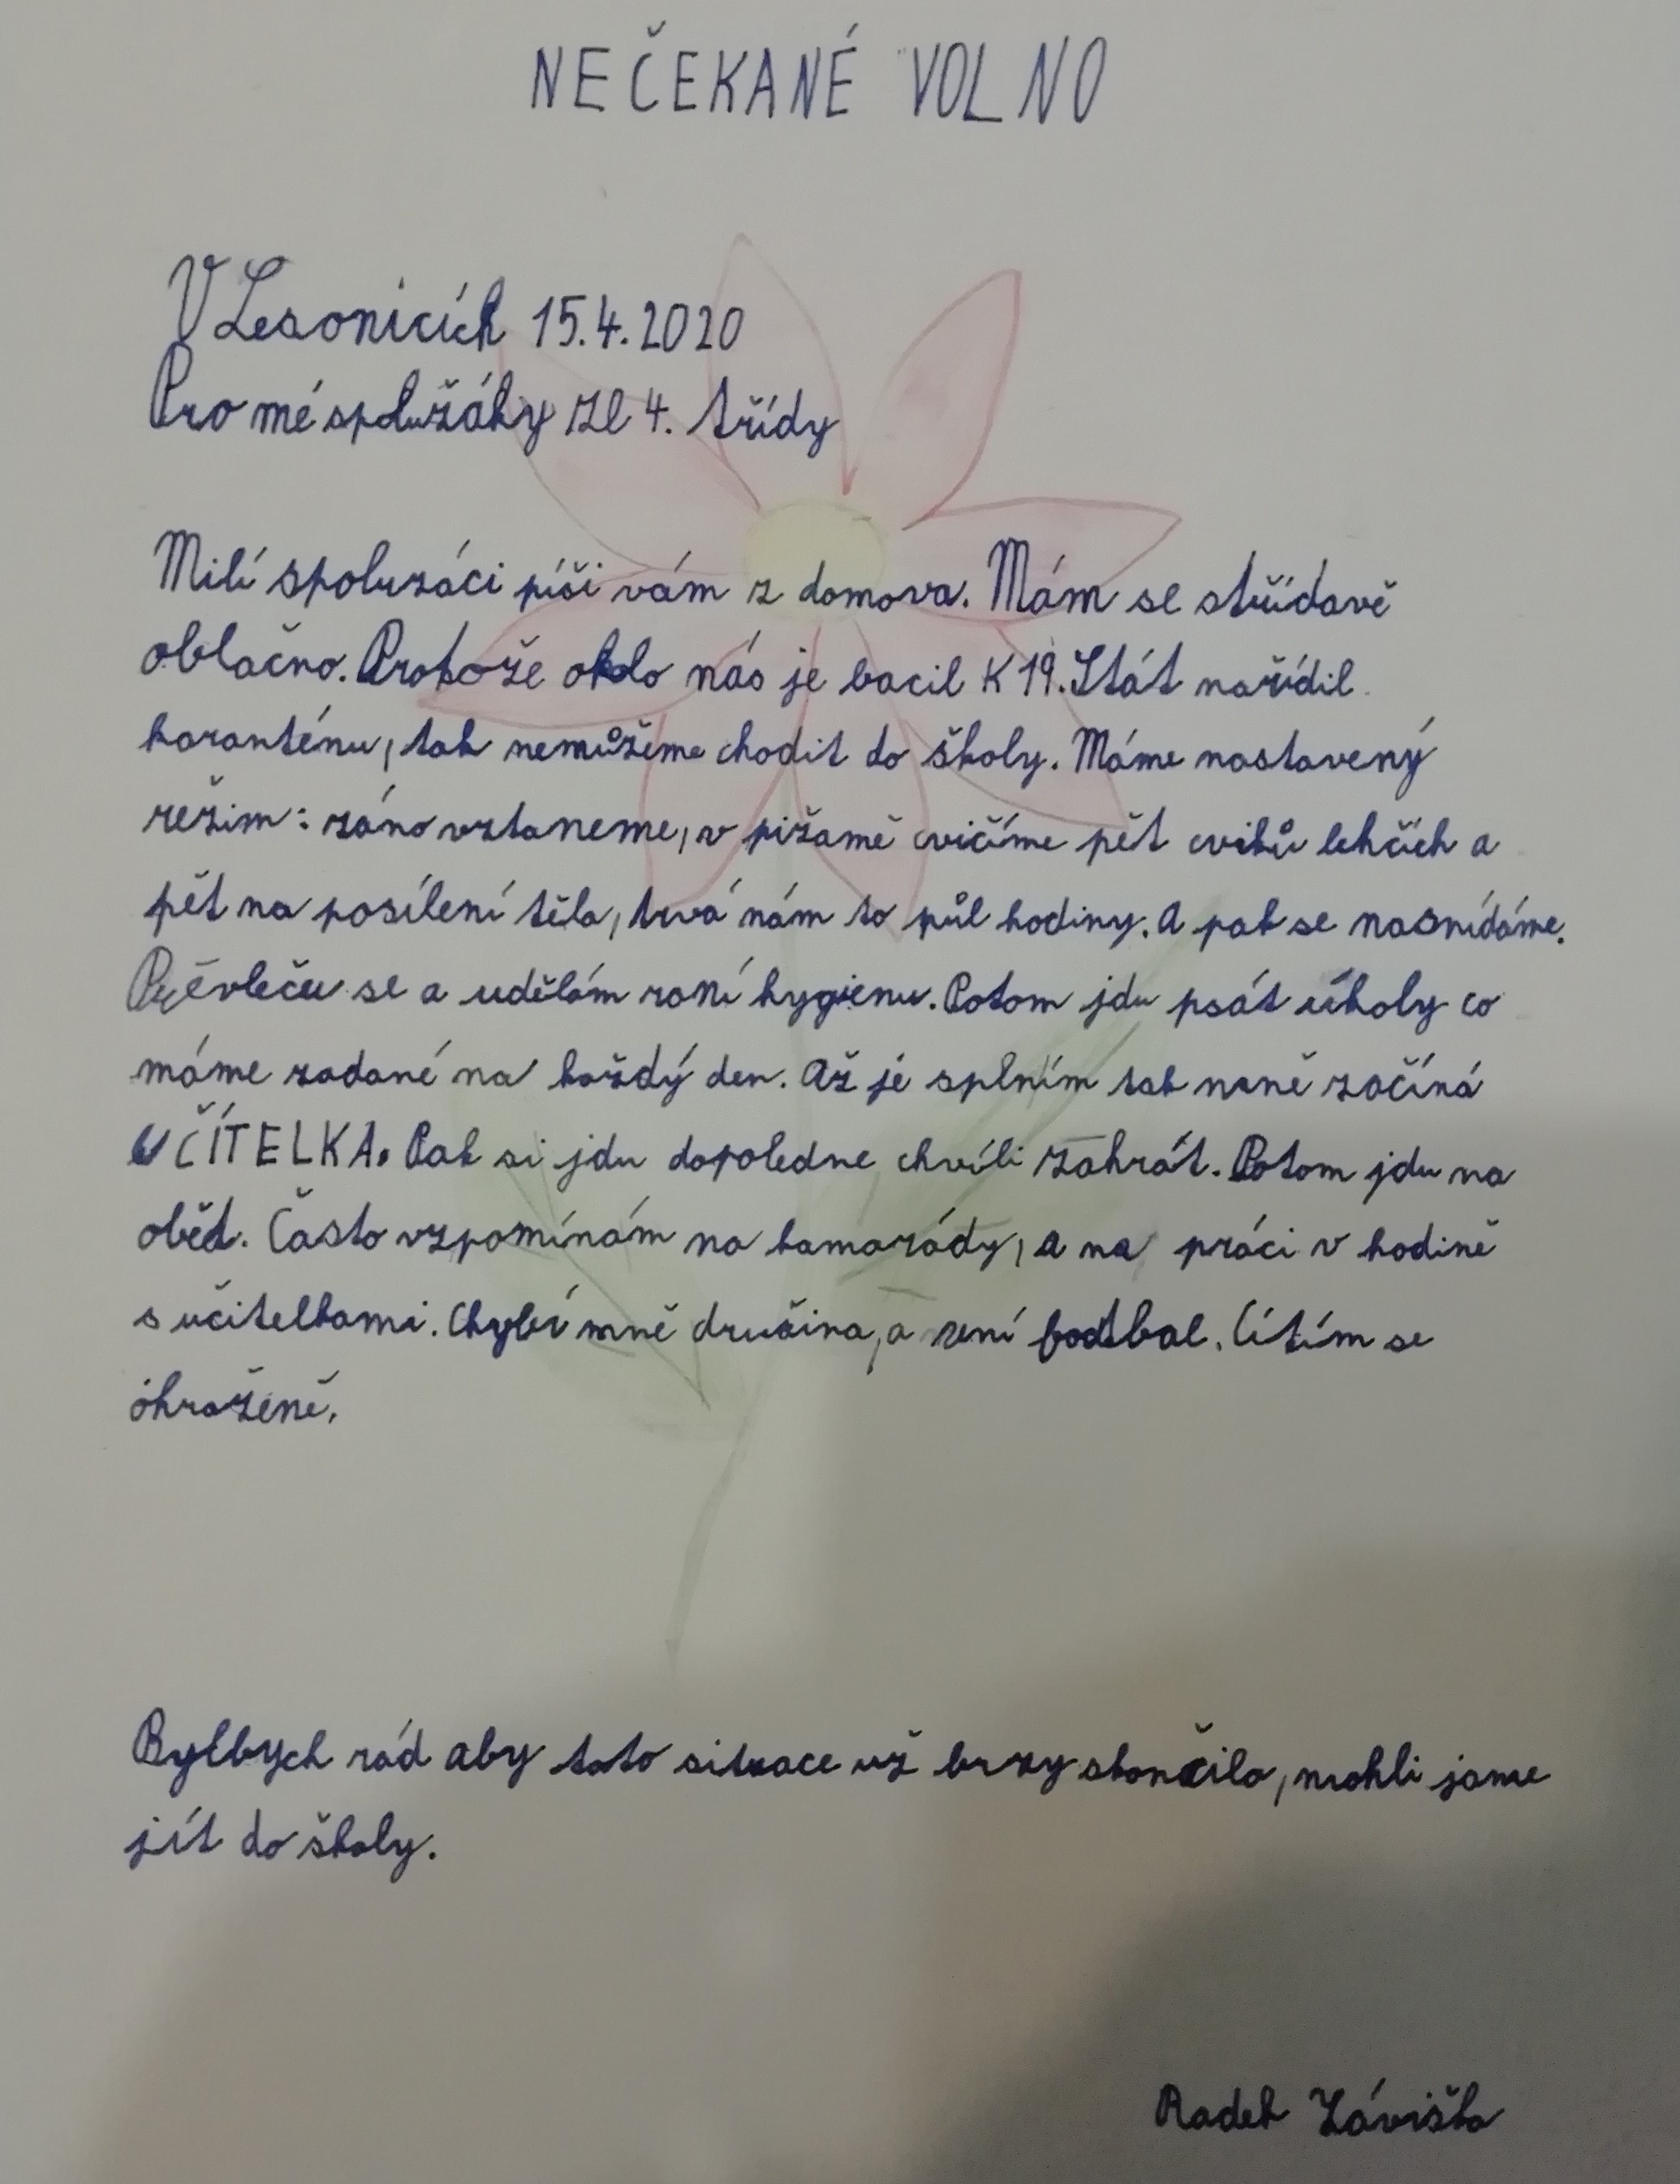 NEČEKANÉ VOLNO
V Lesonicích 15.4.2020
Pro mé spolužáky ze 4. třídy
Milí spolužáci píši vám z domova. Mám se střídavě
oblačno. Protože okolo nás je bacil K19. Stát nařídil
karanténu, tak nemůžeme chodit do školy. Máme nastavený
režim: ráno vztaneme, v pižamě cvičíme pět cviků lehčích a
pět na posílení těla, trvá nám to půl hodiny. A pak se nasnídáme.
Převleču se a udělám raní hygienu. Potom jdu psát úkoly co
máme zadané na každý den. Až je splním tak mně začíná
UČÍTELKA. Pak si jdu dopoledne chvíli zahrát. Potom jdu na
oběd. Často vzpomínám na kamarády, a na práci v hodině
s učitelkami. Chybí mně družina, a není foďbal. Cítím se
ohroženě.
Bylbych rád aby tato situace už brzy skončila, mohli jsme
jít do školy.
Radek Záviška